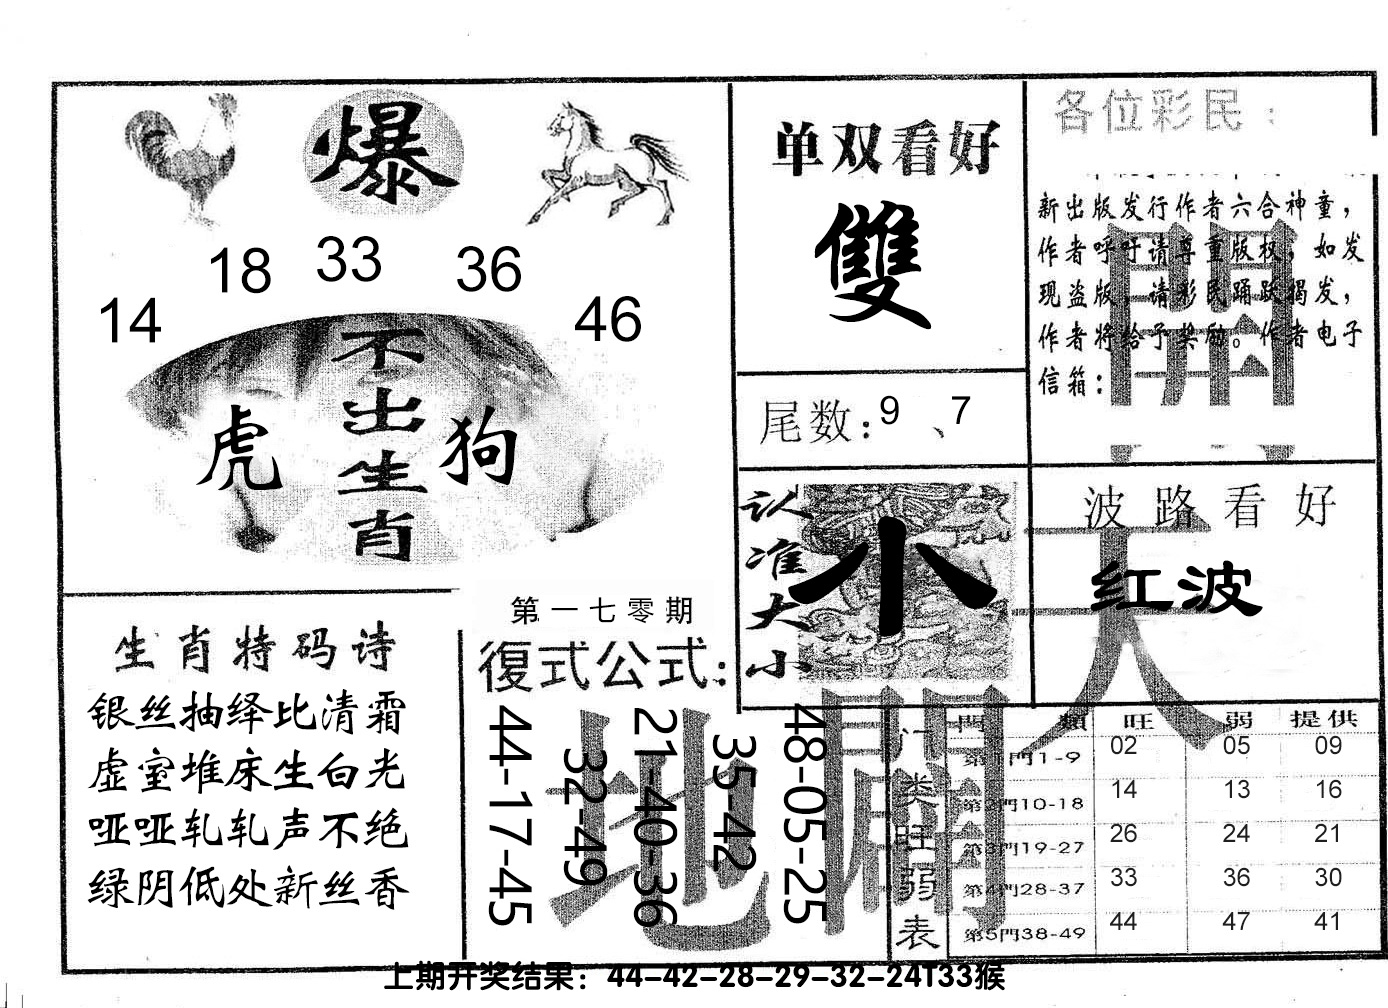 爆
18 33 36
14 46
不出生肖
虎 狗
单双看好
雙
尾数:9、7
各位彩民:
新出版发行作者六合神童,
作者呼吁请尊重版权,如发
现盗版,请彩民踊跃揭发,
作者将给予奖励。作者电子
信箱:
開
认准大小
小
波路看好
红波
天
生肖特码诗
银丝抽绎比清霜
虚室堆床生白光
哑哑轧轧声不绝
绿阴低处新丝香
第一七零期
復式公式:
44-17-45
32-49
21-40-36
35-42
48-05-25
地
闢
门类旺弱表
門類 旺 弱 提供
第1門1-9 02 05 09
第2門10-18 14 13 16
第3門19-27 26 24 21
第4門28-37 33 36 30
第5門38-49 44 47 41
上期开奖结果：44-42-28-29-32-24T33猴